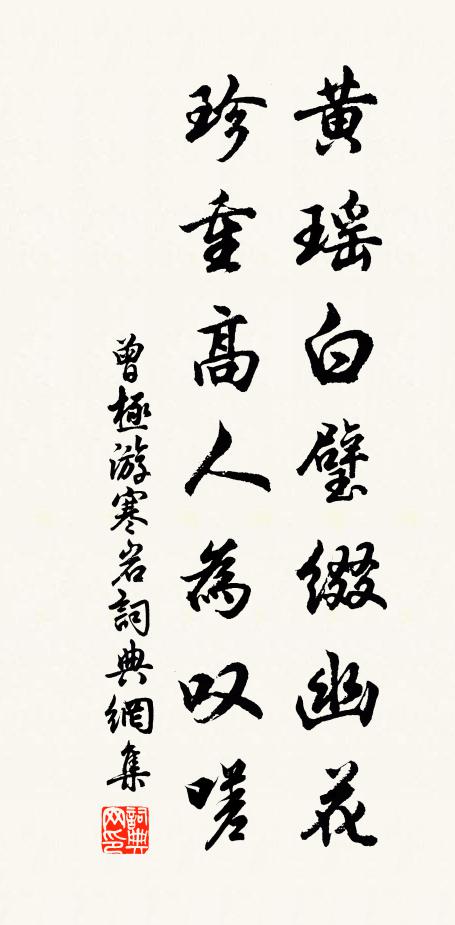 黄瑶白璧缀幽花
珍重高人為叹嗟
曾極游寒岩詞典網集
詞典网印